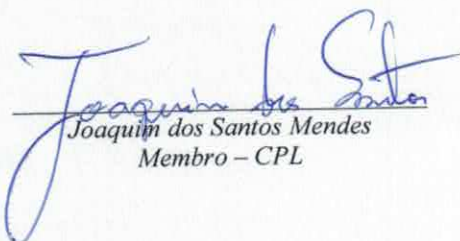 Joaquim dos Santos
Joaquim dos Santos Mendes
Membro – CPL